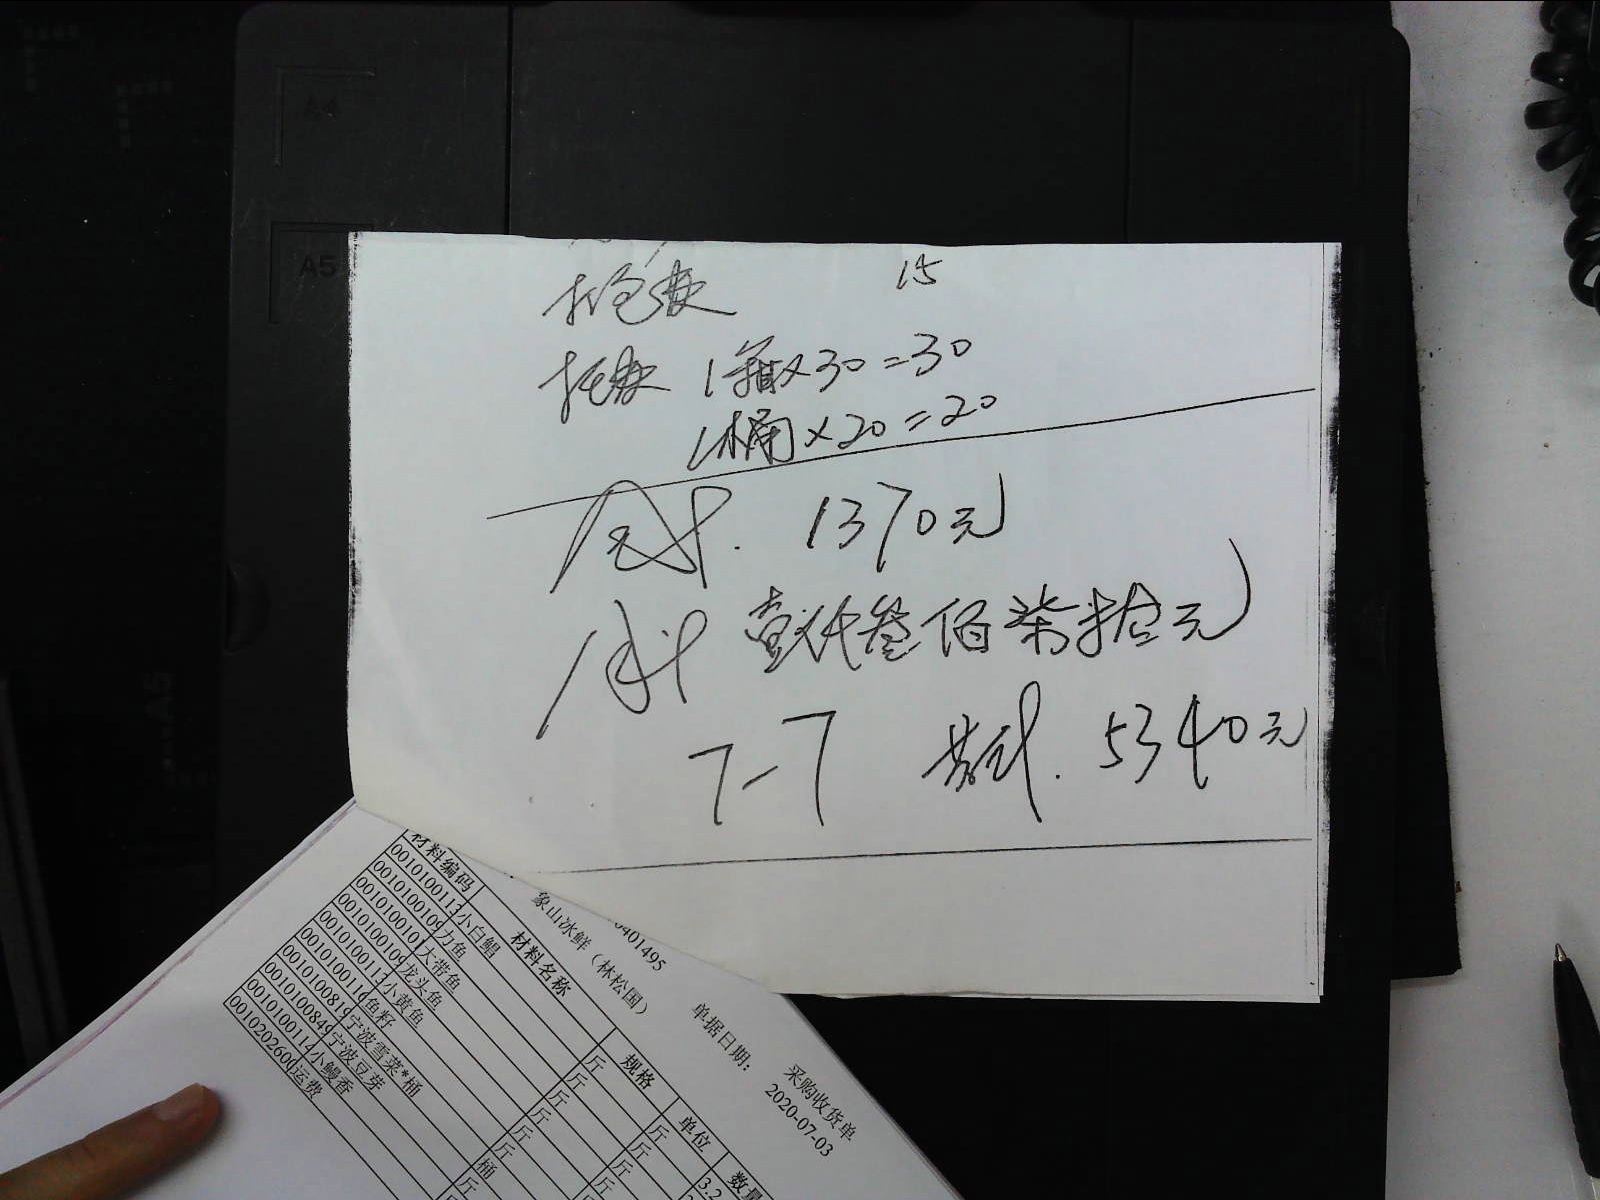 A4
A5
打包费 15
托费 1箱×30=30
1桶×20=20
合计. 1370元
合计 壹仟叁佰柒拾元
7-7 共计. 5340元
采购收货单
0401495 单据日期: 2020-07-03
象山冰鲜（林松国）
材料编码 材料名称 规格 单位 数量
0010100113 小白鲳 斤 斤 3.2
0010100109 力鱼 斤 斤
001010010 大带鱼 斤 斤
001010010 龙头鱼 斤
001010011 小黄鱼 斤
001010011 鱼籽 斤
001010081 宁波雪菜*桶 桶
001010084 宁波豆芽 斤
001010011 小鳗香
001020260 运费